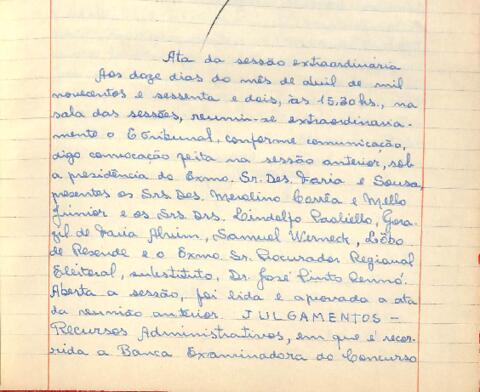 Ata da sessão extraordinária
Aos doze dias do mês de abril de mil
novecentos e sessenta e dois, às 15,30 hs., na
sala das sessões, reuniu-se extraordinaria-
mente o E. Tribunal, conforme comunicação,
digo convocação feita na sessão anterior, sob
a presidência do Exmo. Sr. Des. Faria e Sousa,
presentes os Srs. Des. Merolino Corrêa e Mello
Júnior e os Srs. Drs. Lindolfo Paoliello, Gera-
zil de Faria Alvim, Samuel Werneck, Lôbo
de Resende e o Exmo. Sr. Procurador Regional
Eleitoral, substituto, Dr. José Pinto
Aberta a sessão, foi lida e aprovada a ata
da reunião anterior. JULGAMENTOS –
Recursos Administrativos, em que é recor-
rida a Banca Examinadora do Concurso